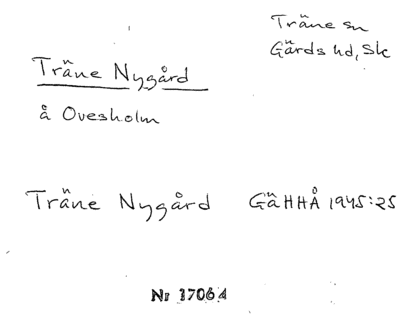 Träne sn
Gärds hd, Sk
Träne Nygård
å Ovesholm
Träne Nygård GäHHÅ 1945:25
Nr 17064